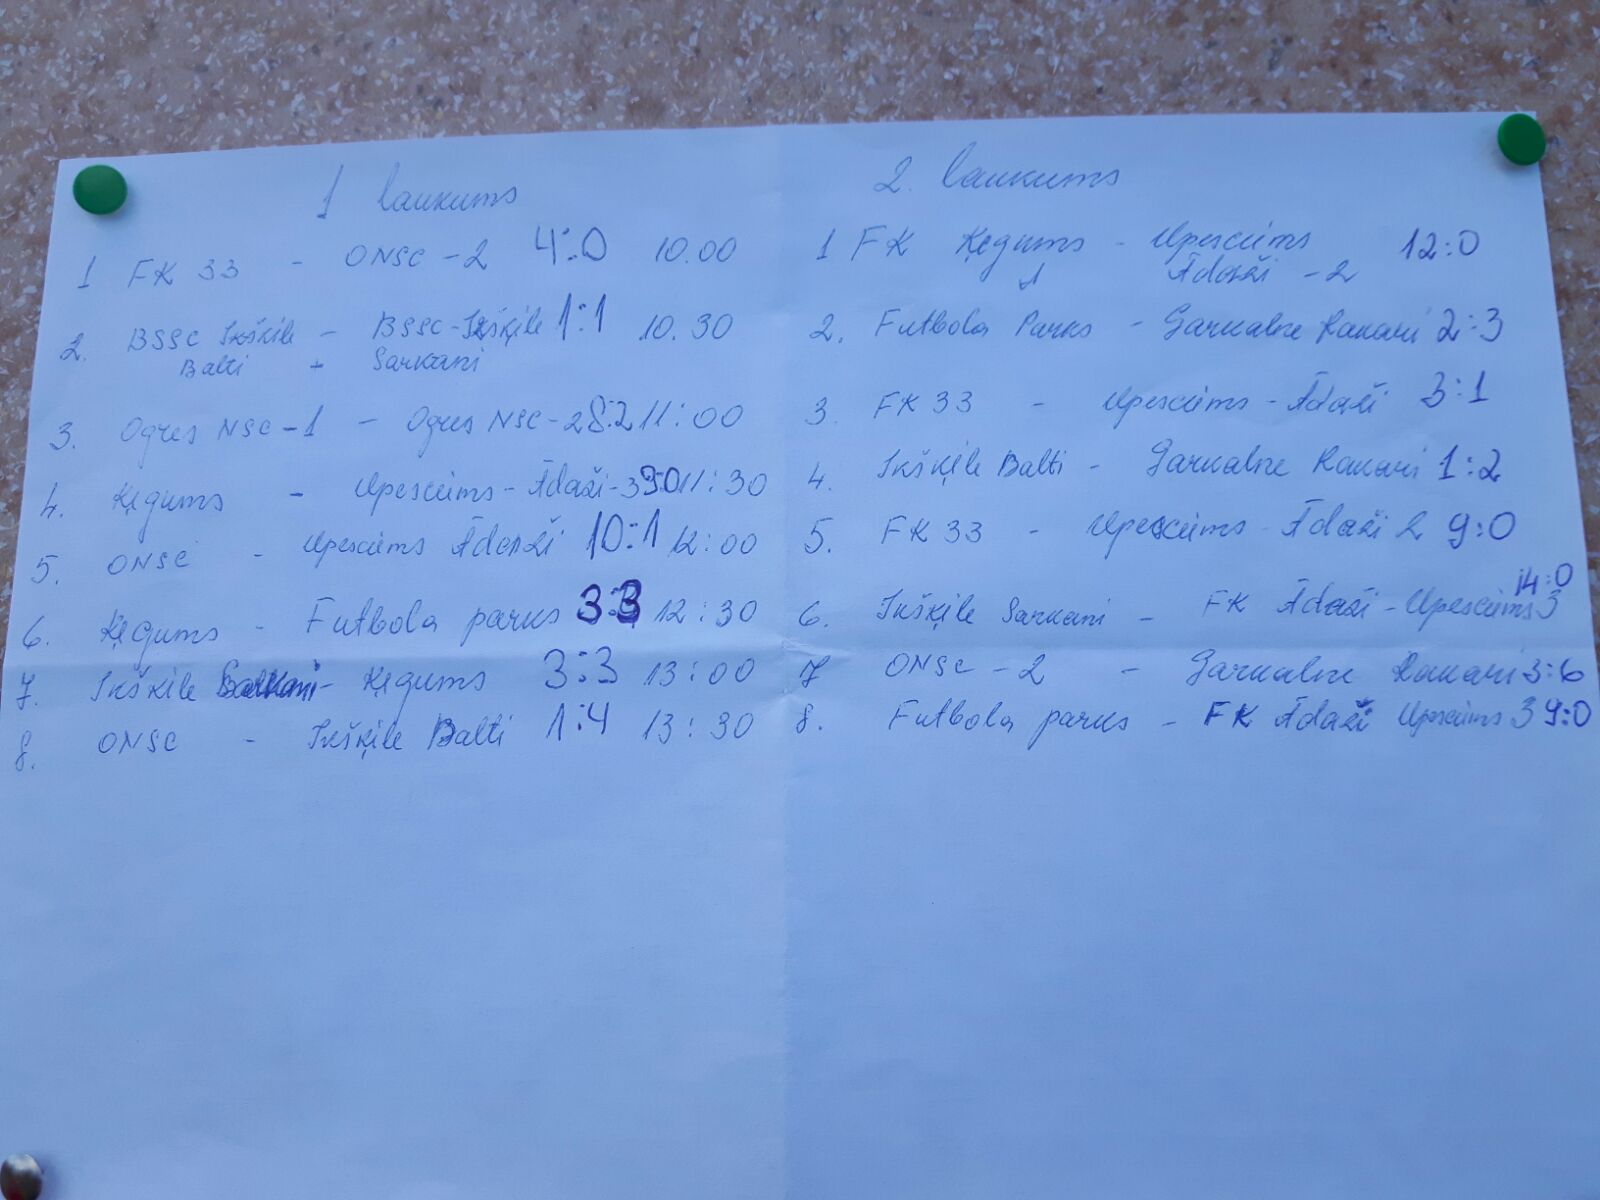 1 laukums
1 FK 33 - ONSC -2 4:0 10.00
2. BSSC Ikšķile - BSSC-Ikšķile 1:1 10.30
Balti + Sarkani
3. Ogres NSC -1 - Ogres NSC-2 8:2 11:00
4. Ķegums - Upesciems - Ādaži-3 9:0 11:30
5. ONSC - Upesciems Ādaži 10:1 12:00
6. Ķegums - Futbola parks 3:3 12:30
7. Ikšķile Sarkani - Ķegums 3:3 13:00
8. ONSC - Ikšķile Balti 1:4 13:30
2. laukums
1 FK Ķegums - Upesciems 12:0
1 Ādaži -2
2. Futbola Parks - Garkalne Ranari 2:3
3. FK 33 - Upesciems - Ādaži 3:1
4. Ikšķile Balti - Garkalne Ranari 1:2
5. FK 33 - Upesciems - Ādaži 2 9:0
6. Ikšķile Sarkani - FK Ādaži - Upesciems 3 14:0
7 ONSC -2 - Garkalne Ranari 3:6
8. Futbola parks - FK Ādaži Upesciems 3 9:0